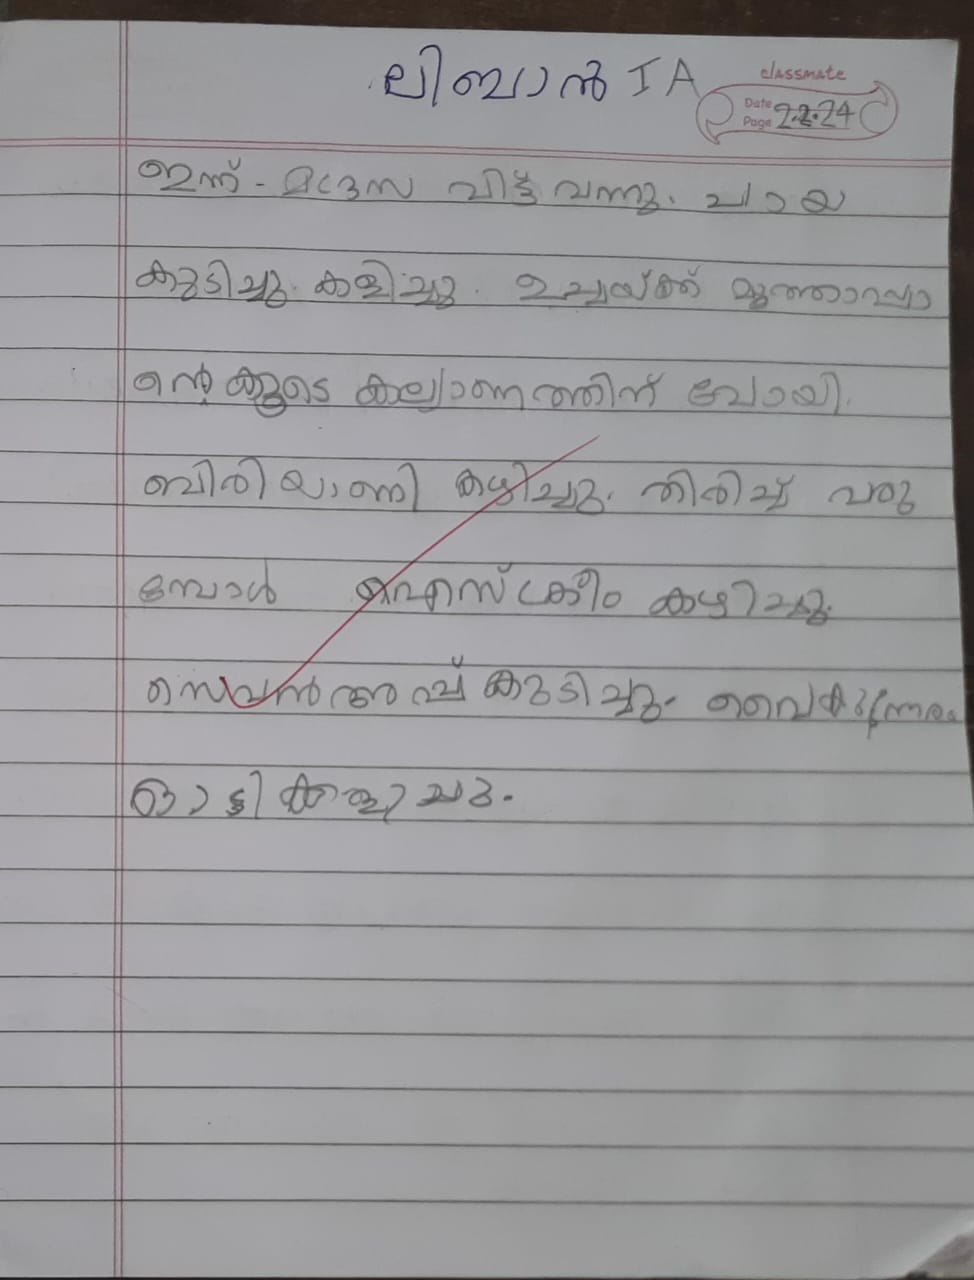 ലിബാൻ I A
classmate
Date 2.2.24
Page
ഇന്ന് - മദ്രസ വിട്ട് വന്നു. ചായ
കുടിച്ചു. കളിച്ചു. ഉച്ചയ്ക്ക് മൂത്താപ്പാ
ന്റെ കൂടെ കല്യാണത്തിന് പോയി.
ബിരിയാണി കഴിച്ചു. തിരിച്ച് വരു
മ്പോൾ ഐസ്ക്രീം കഴിച്ചു.
സെവൻഅപ്പ് കുടിച്ചു. വൈകുന്നേരം
ഓടിക്കളിച്ചു.